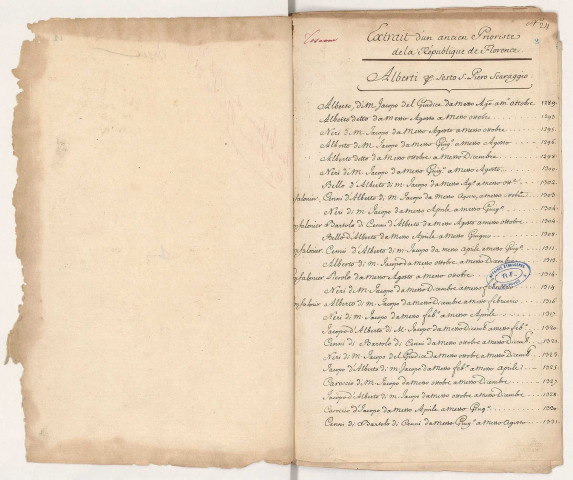 24
Extrait d'un ancien Prioriste
de la Republique de Florence.
Alberti Sesto S. Piero Scaraggio
Alberto, di M. Jacopo del Giudice da mezzo Ago a mo ottobre 1289
Alberto detto da mezzo Agosto a mezzo ottobre 1293
Neri di M. Jacopo da mezzo Agosto a mezzo ottobre 1295
Alberto di M. Jacopo da mezzo Giugo a mezzo Agosto 1296
Alberto detto da mezzo ottobre a mezzo Dicembre 1298
Neri di M. Jacopo da mezzo Giugo a mezzo Agosto 1300
Bello d'Alberto di M. Jacopo da mezzo Ago a mezzo ottre 1302
nfalonier Cenni d'Alberto di M. Jacopo da mezzo Agosto, a mezzo ottobre 1303
Neri di M. Jacopo da mezzo Aprile a mezzo Giugo 1304
nfalonier Bartolo di Cenni d'Alberto da mezzo Agosto a mezzo ottobre 1304
Bello d'Alberto da mezzo Aprile a mezzo Giugno 1308
nfalonier Cenni d'Alberto di M. Jacopo da mezzo Aprile a mezzo Giugo 1311
Alberto di M. Jacopo da mezzo ottobre a mezzo Dicembre 1313
nfalonier da mezzo Agosto a mezzo ottobre 1314
Neri di M. Jacopo da mezzo Dicembre a mezzo 1314
nfalonier Alberto di M. Jacopo da mezzo Dicembre a mezzo febraro 1316
Neri di M. Jacopo da mezzo febo a mezzo Aprile 1317
Jacopo d'Alberto di M. Jacopo da mezzo Dicemb a mezzo febo 1320
Cenni di Bartolo di Cenni da mezzo ottobre a mezzo Dicemb. 1322
Neri di M. Jacopo del Giudice da mezzo ottobre a mezzo Dicemb 1323
Jacopo d'Alberto di M. Jacopo da mezzo febo a mezzo Aprile 1325
Caroccio di M. Jacopo da mezzo ottobre a mezzo Dicembre 1327
Jacopo d'Alberto di M. Jacopo da mezzo ottobre a mezzo Dicembre 1328
Caroccio d'Jacopo da mezzo Aprile a mezzo Giugo 1330
Cenni di Bartolo di Cenni da mezzo Giugo a mezzo Agosto 1331